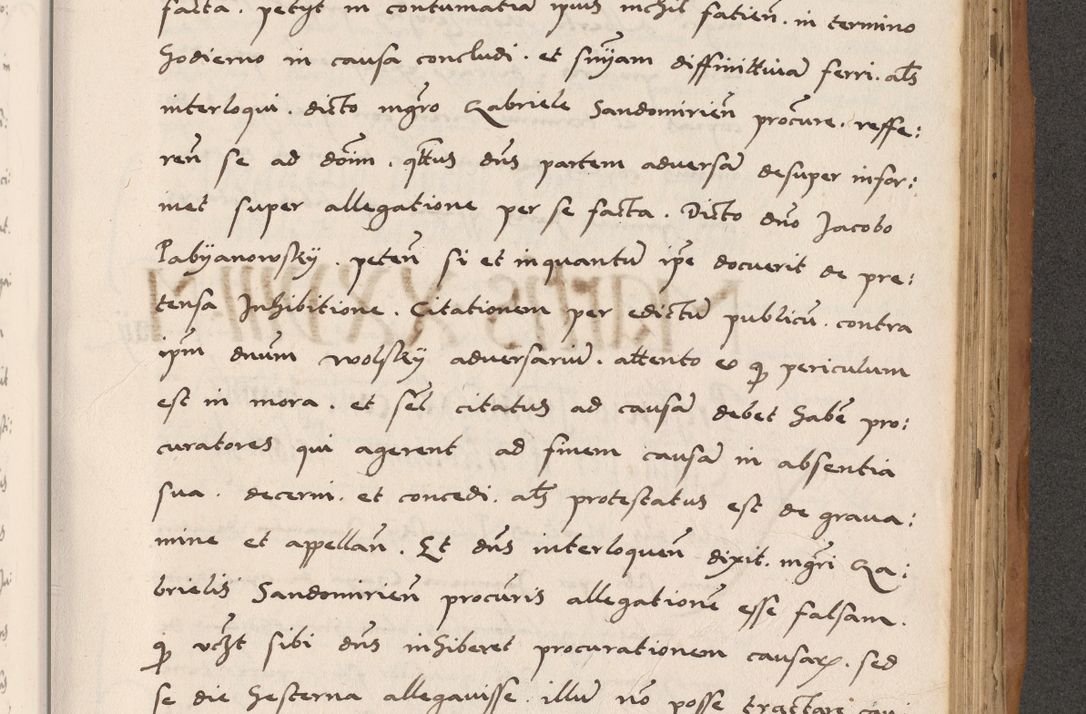 facta . petyt in contumatia ipius nichil fatien̄ . in termino
hodierno in causa concludi . et sn̄yam diffinittiua ferri . als̄
interloqui . dicto mgr̄o Gabriele Sandomirien̄ procūre . reffe:
ren̄ se ad don̄m . qttus dn̄s partem adversā desuper infor:
met super allegatione per se facta . Dicto dn̄o Jacobo
Pabyanowsky . peten̄ si et inquantū ip̄e docuerit de pre:
tensa Inhibitione . Citationem per edictū publicū . contra
ip̄m dnum Wolsky adversariū . attento eo q̄ periculum
est in mora . et sēl citatus ad causā debet habē pro:
curatores qui agerent ad finem causā in absentia
sua . decerni . et concedi . als̄ protestatus est de graua:
mine et appellan̄ . Et dn̄s interloquen̄ dixit . mgr̄i Ga:
brielis Sandomirien̄ procur̄is allegationē esse falsam .
q̄ sibi dn̄s inhiberet procurationem causar . sed
se die hesterna allegauisse . illū nō posse tractare